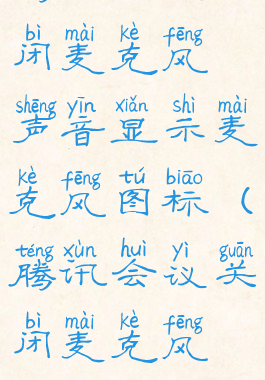 bì mài kè fēng
闭麦克风
shēng yīn xiǎn shì mài
声音显示麦
kè fēng tú biāo
克风图标（
téng xùn huì yì guān
腾讯会议关
bì mài kè fēng
闭麦克风